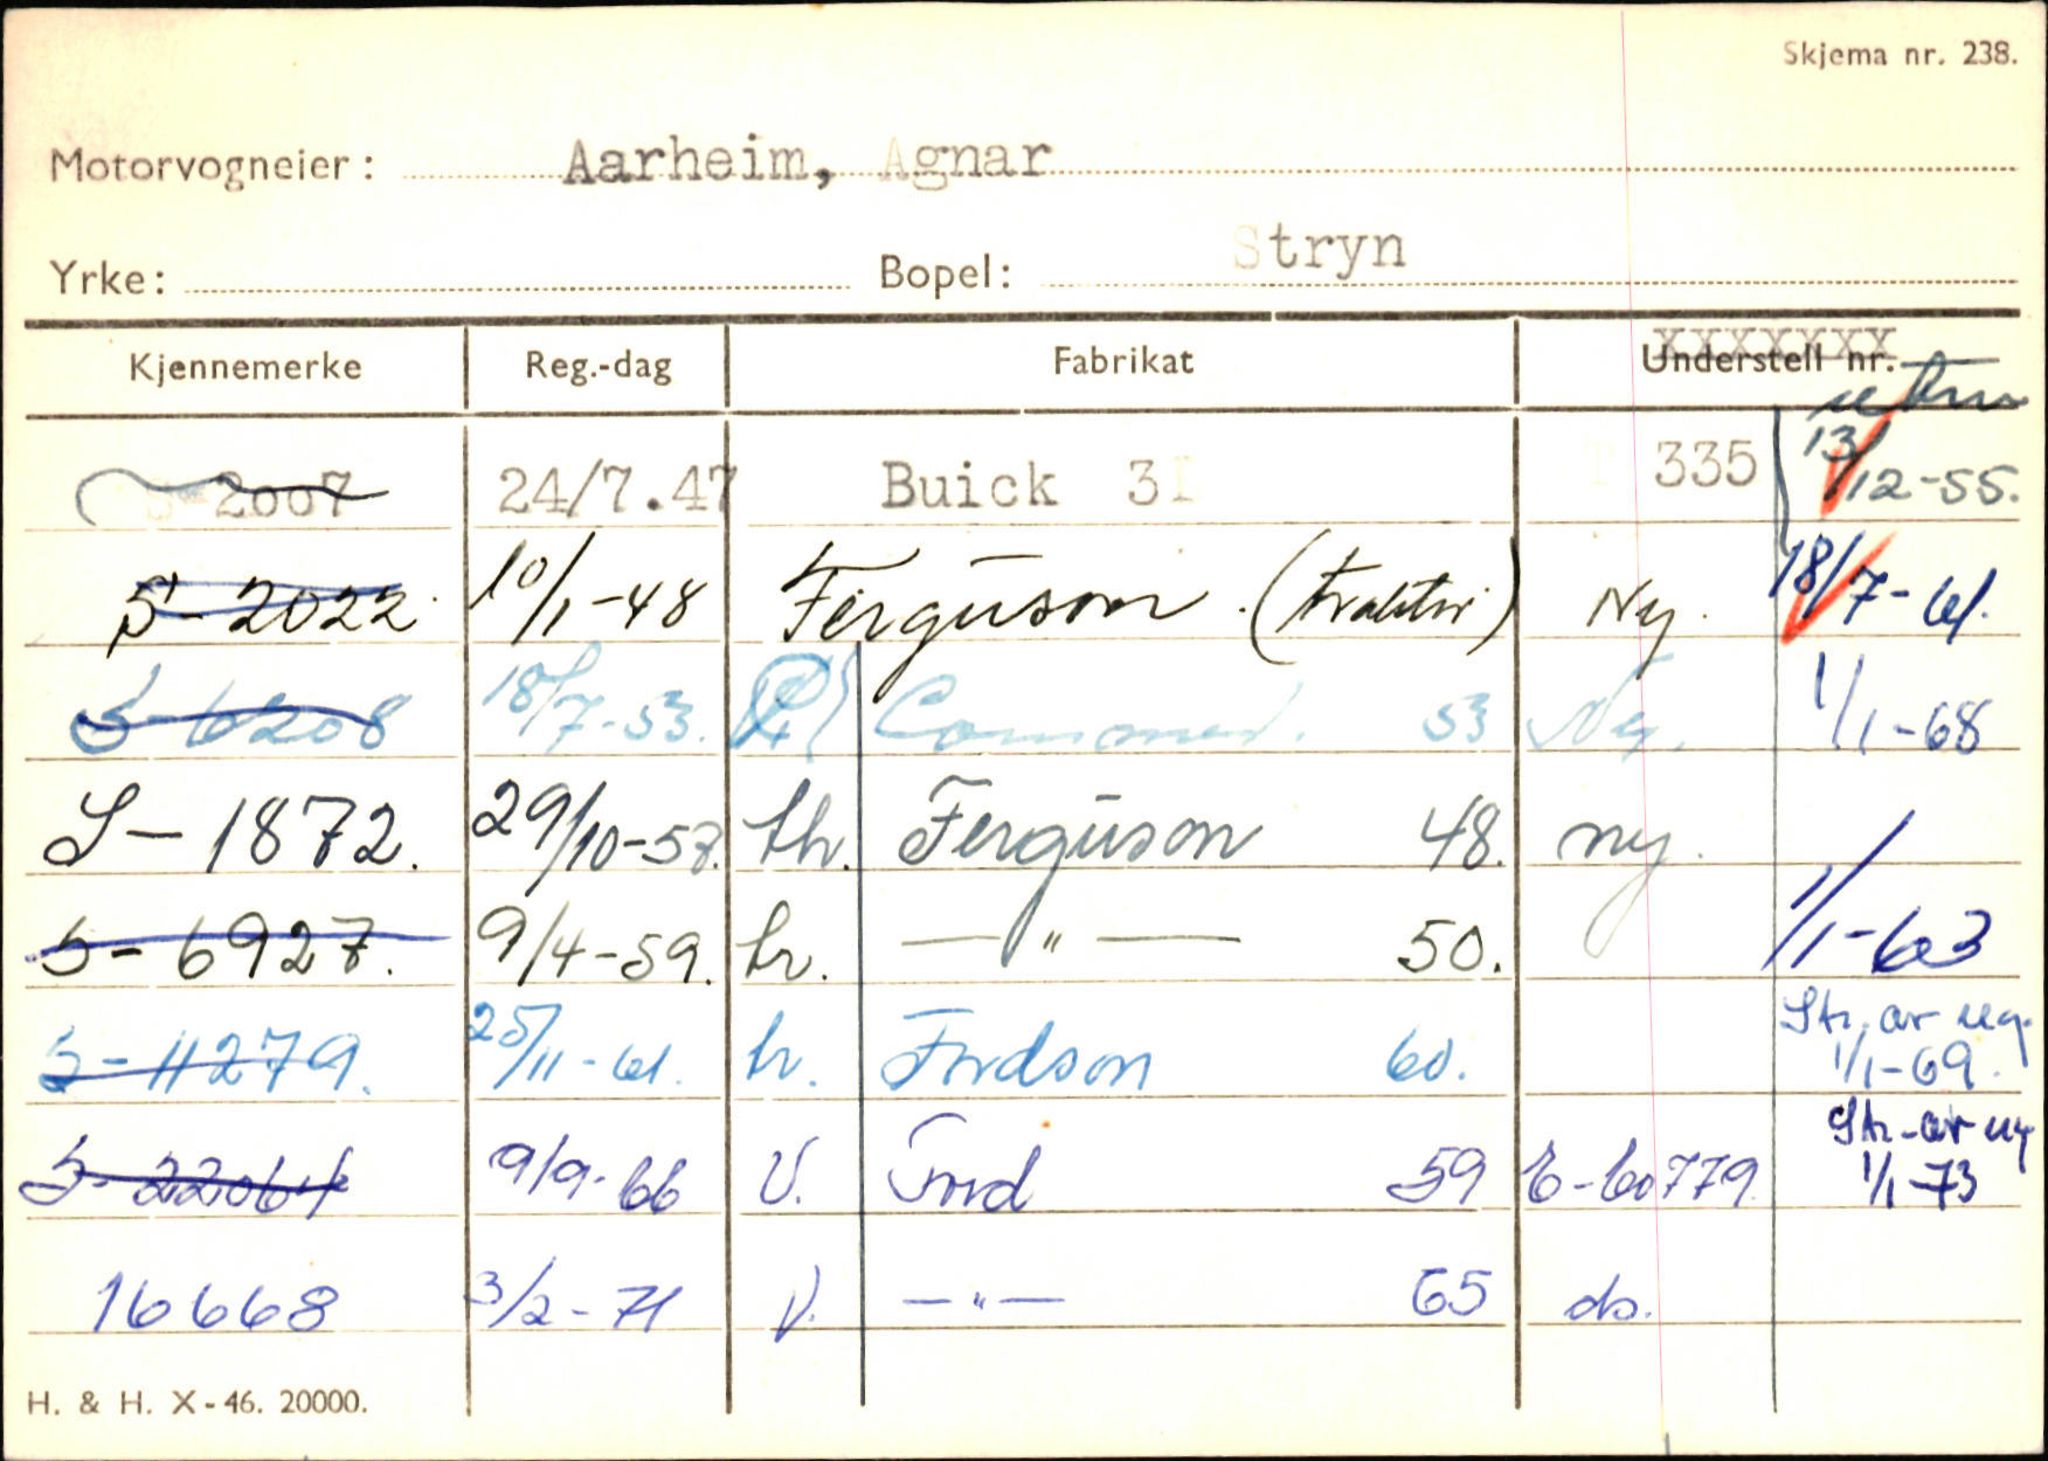 Skjema nr. 238.
Motorvogneier: Aarheim, Agnar
Yrke: Bopel: Stryn
Kjennemerke Reg.-dag Fabrikat Understell nr. XXXXXXX
S-2007 24/7.47 Buick 31 T 335 13/12-55.
S-2022 10/1-48 Ferguson (traktor) Ny. 18/7-61.
S-6208 18/7-53. 53 Ny. 1/1-68
S-1872. 29/10-57. tr. Ferguson 48. ny.
S-6927. 9/4-59. tr. —"— 50. 1/1-63
S-11279. 25/11-61. tr. Fordson 60. Str. av reg. 1/1-69.
S-22064 9/9-66 V. Ford 59 E-60779 Str. av reg 1/1-73
16668 3/2-71 V. —"— 65 do.
H. & H. X-46. 20000.